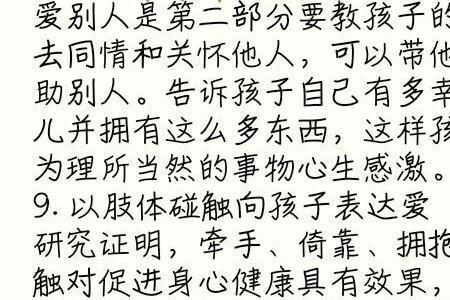 爱别人是第二部分要教孩子的
去同情和关怀他人，可以带他
助别人。告诉孩子自己有多幸
儿并拥有这么多东西，这样孩
为理所当然的事物心生感激。
9. 以肢体碰触向孩子表达爱
研究证明，牵手、倚靠、拥抱
触对促进身心健康具有效果，